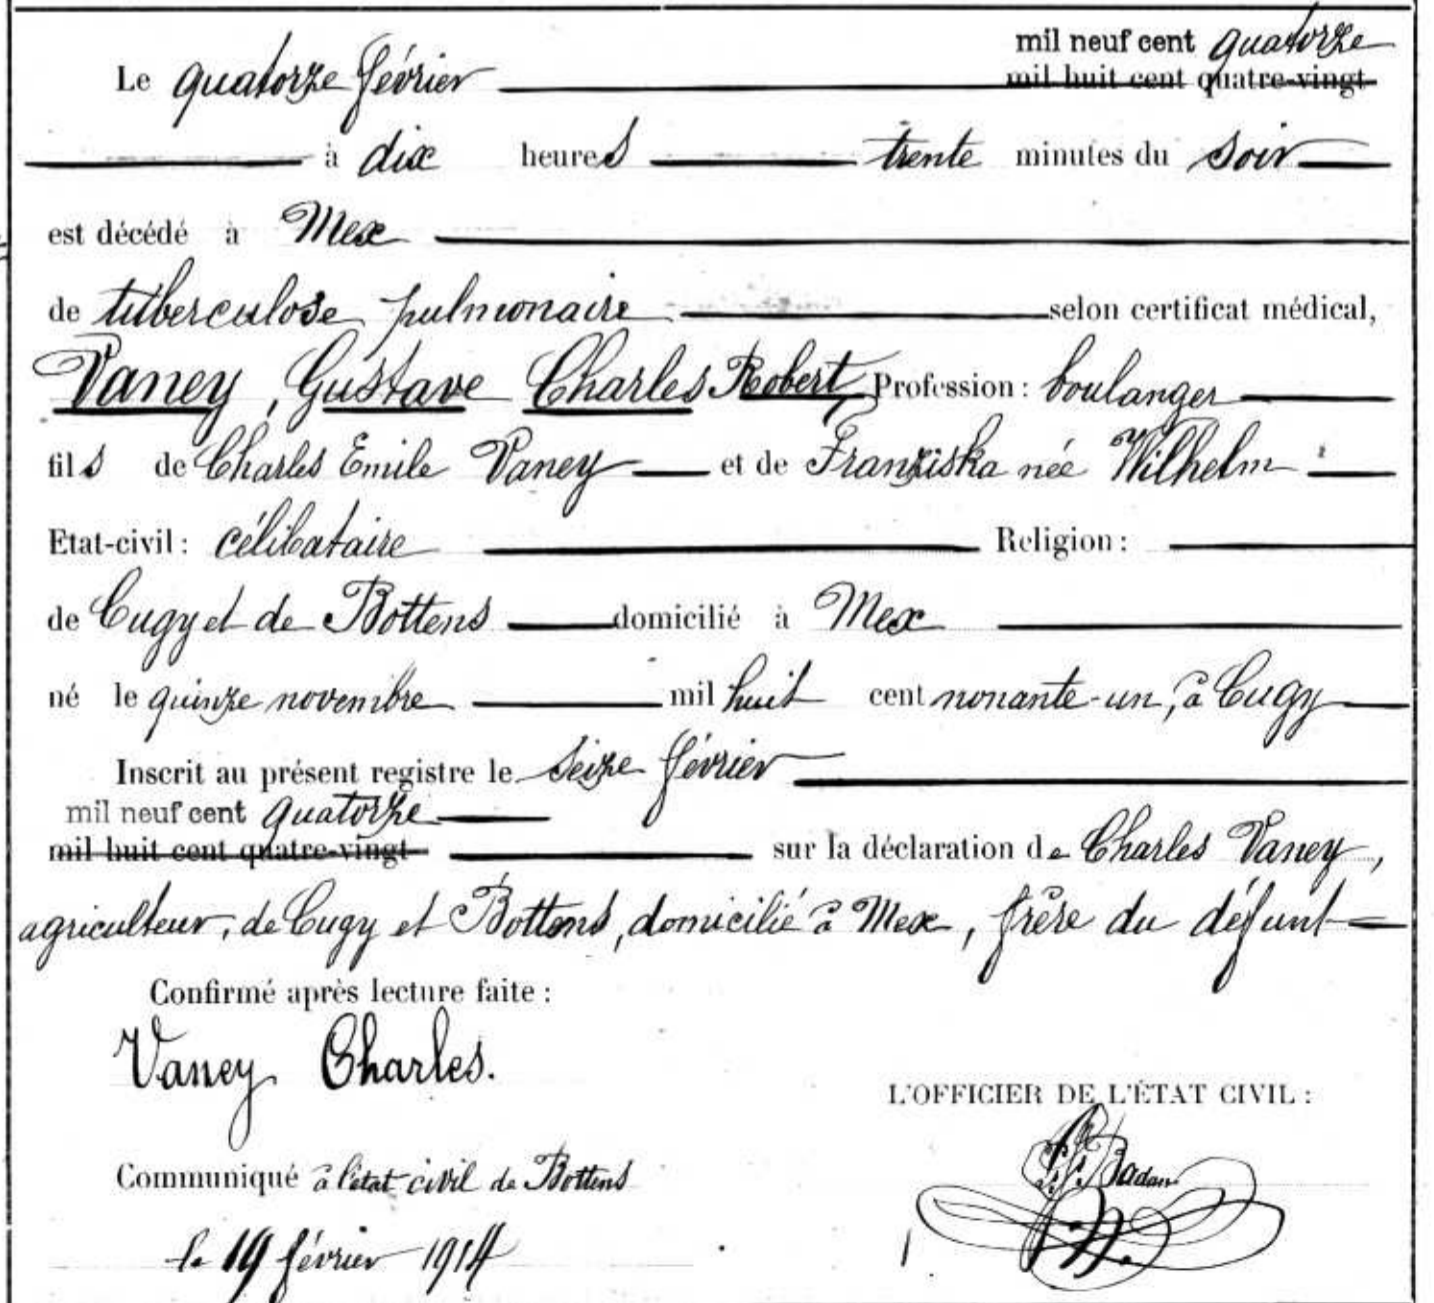 mil neuf cent quatorze
Le quatorze février mil huit cent quatre-vingt
à dix heures trente minutes du soir
est décédé à Mex
de tuberculose pulmonaire selon certificat médical,
Vaney, Gustave Charles Robert, Profession : boulanger
fils de Charles Emile Vaney et de Franziska née Wilhelm
Etat-civil : célibataire Religion :
de Cugy et de Bottens domicilié à Mex
né le quinze novembre mil huit cent nonante-un, à Cugy
Inscrit au présent registre le seize février
mil neuf cent quatorze
mil huit cent quatre-vingt sur la déclaration de Charles Vaney,
agriculteur, de Cugy et Bottens, domicilié à Mex, frère du défunt
Confirmé après lecture faite :
Vaney Charles.
L'OFFICIER DE L'ÉTAT CIVIL :
Communiqué à l'état civil de Bottens
le 19 février 1914